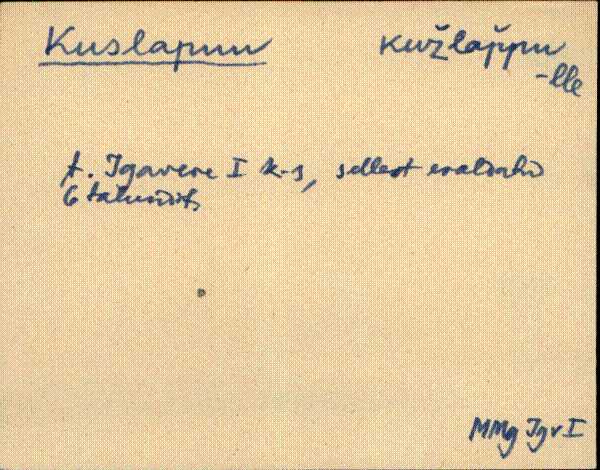 Kuslapuu kužlap̆pu
-lle
t. Igavere I k-s, sellest eraldati
6 talundit
MMg Igv I